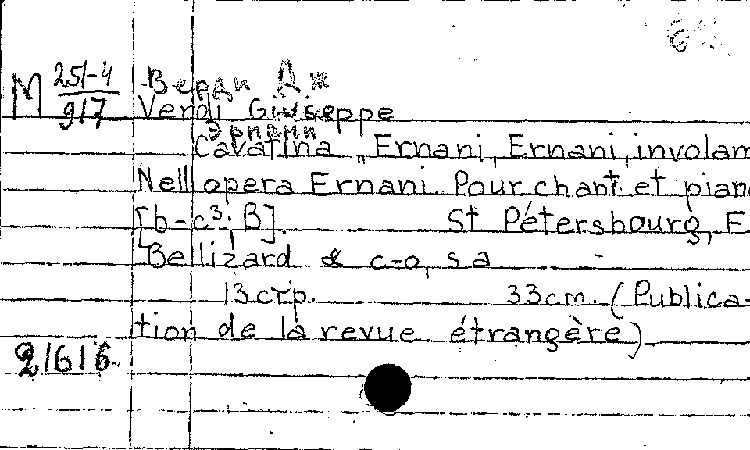 M 251-4
917
Верди Дж
Verdi Giuseppe
Эрнани
Cavatina „Ernani, Ernani, involam
Nell opera Ernani. Pour chant et piano
[b-c³; B]. St Pétersbourg, F
Bellizard & c-o, s a
13 стр. 33 cm. (Publica-
tion de la revue étrangère)
21616